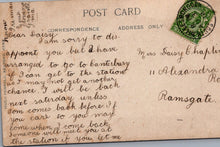 Dear Daisy
I am sorry to dis
appoint you but I have
arranged to go to Canterbury
if I can get to the station
I may not get another
chance. I will be back
next saturday unless
Tom comes back before if
you care so you may
come when I come back
Someone will meet you at
the station if you let me
POST CARD
CORRESPONDENCE
ADDRESS ONLY
Miss Daisy Chaplin
11 Alexandra
Ro
Ramsgate